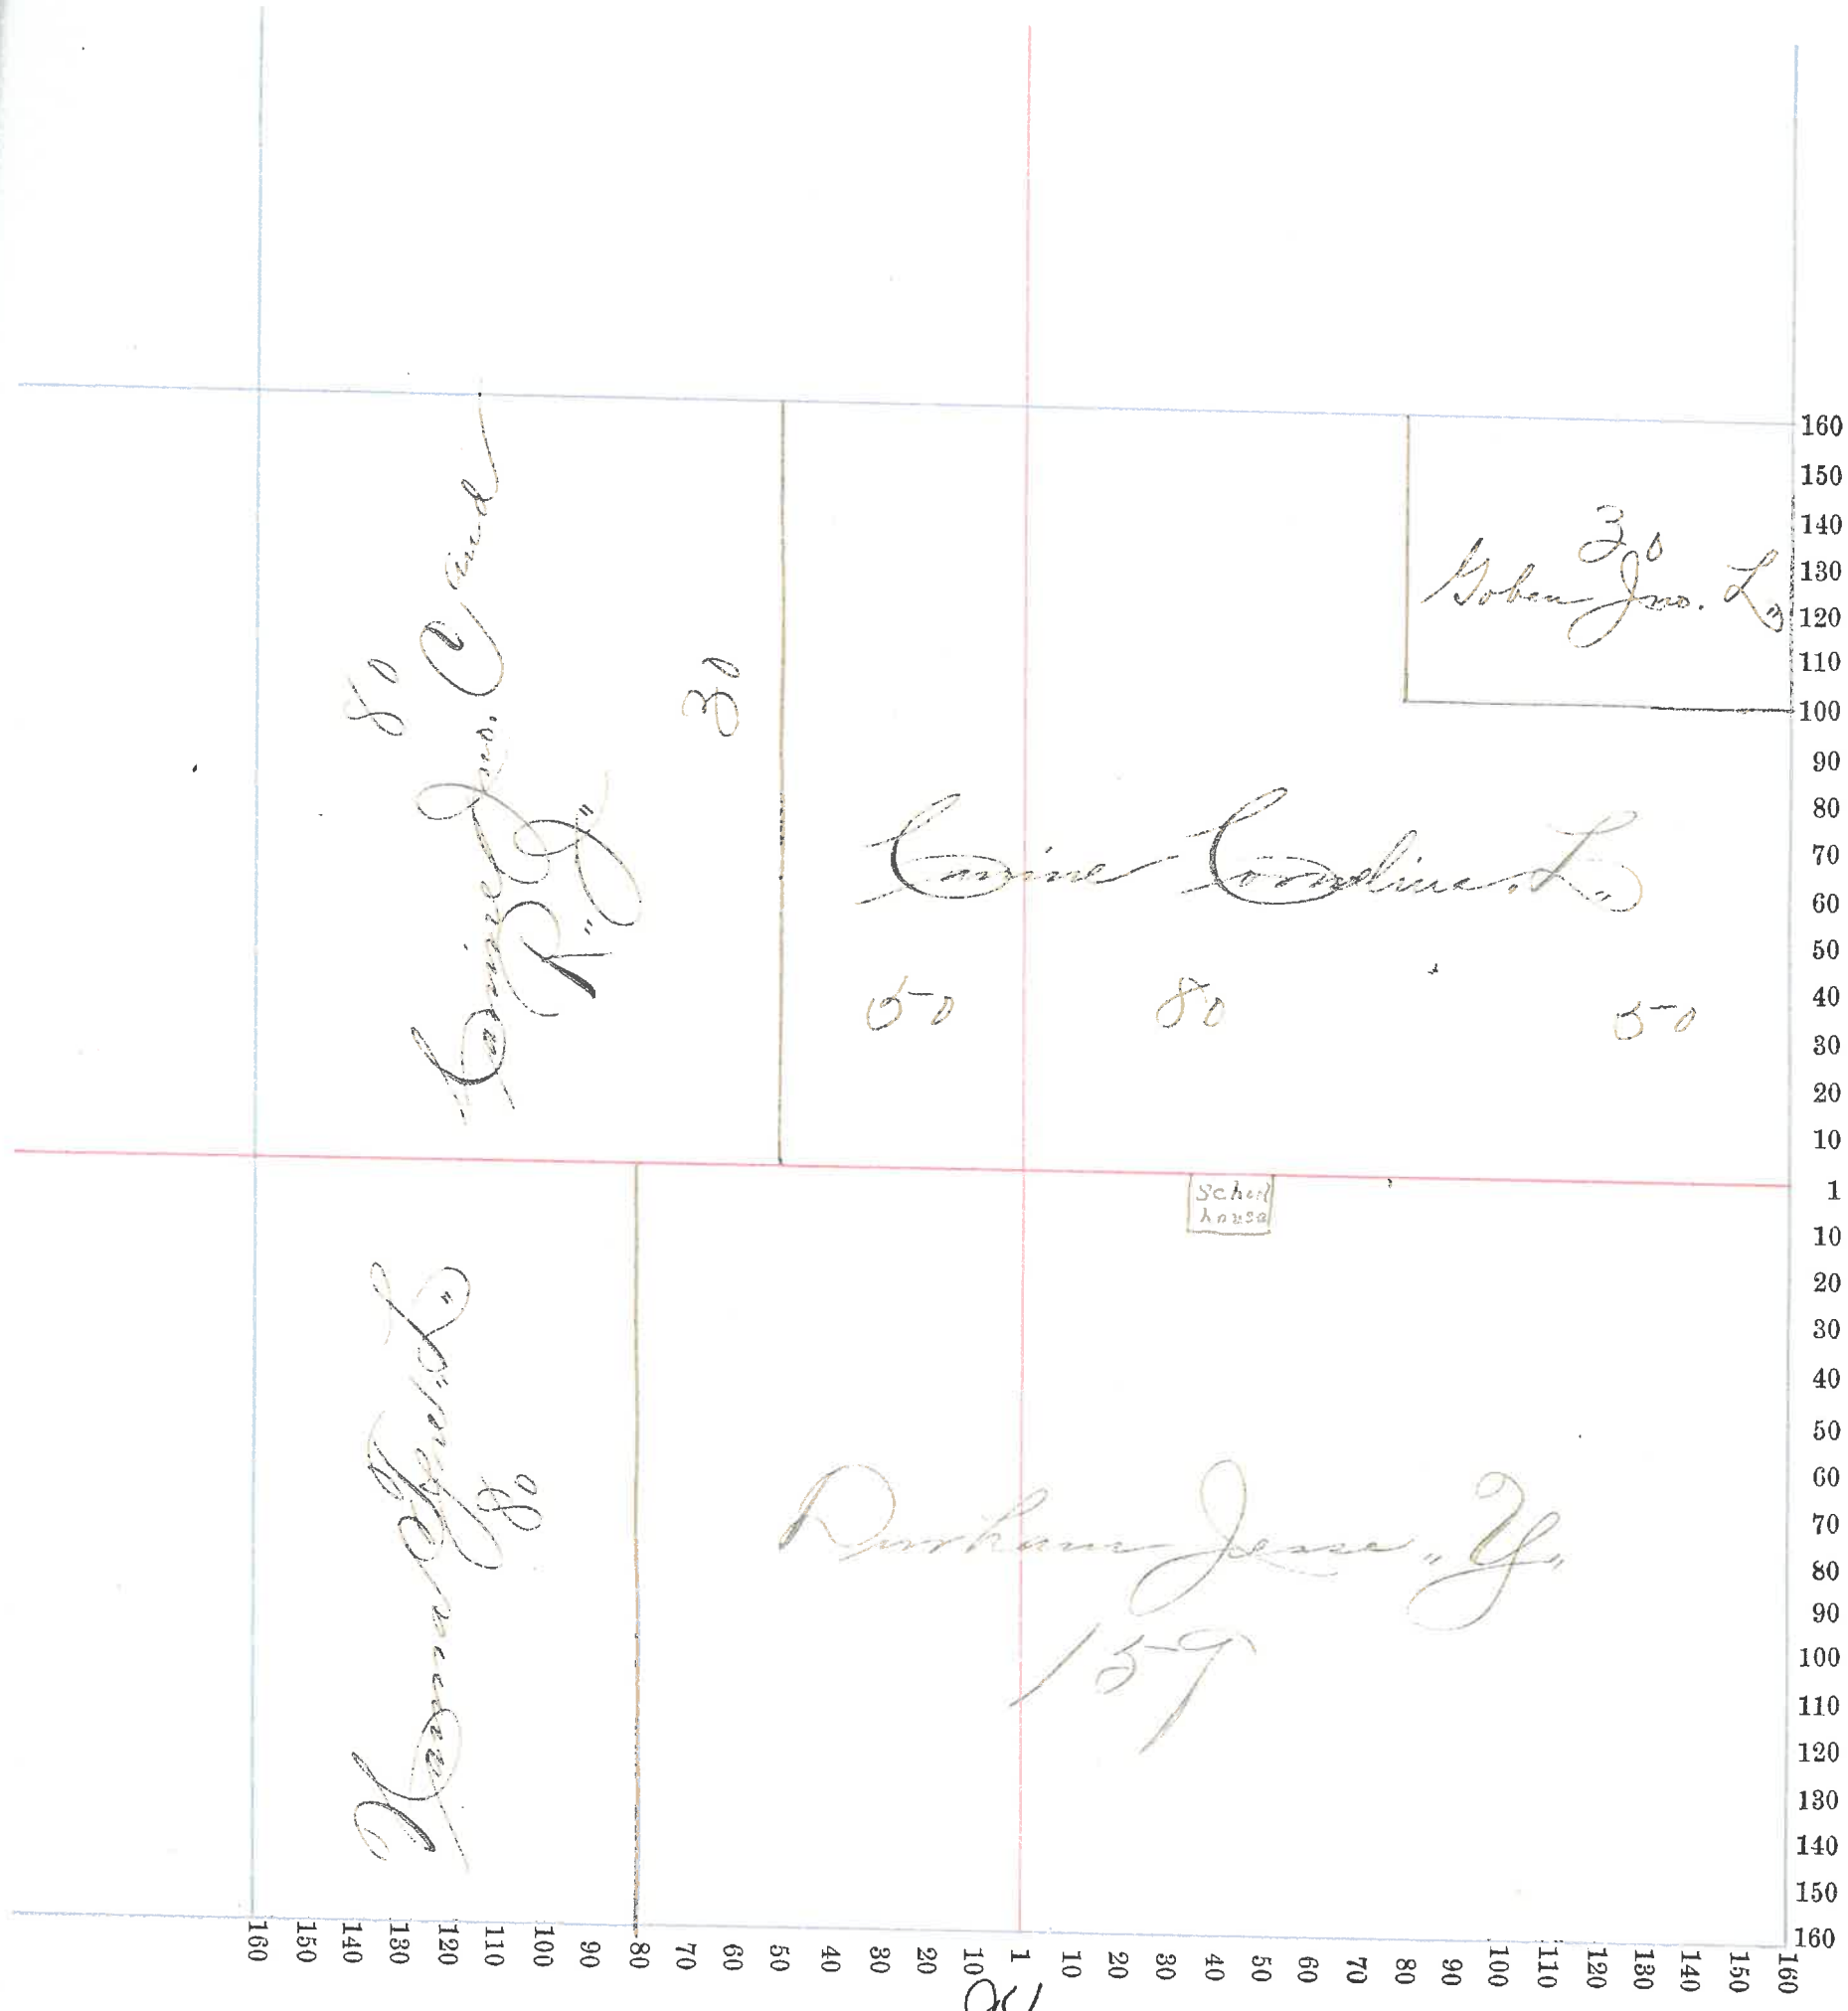 30
Goben Jno. L„
80
Canine Jno. C and
R" J"
30
Canine Cornelius. L„
50 80 50
School
house
80
Durham Jesse „ Y„
159
160
150
140
130
120
110
100
90
80
70
60
50
40
30
20
10
1
10
20
30
40
50
60
70
80
90
100
110
120
130
140
150
160
160 150 140 130 120 110 100 90 80 70 60 50 40 30 20 10 1 10 20 30 40 50 60 70 80 90 100 110 120 130 140 150 160